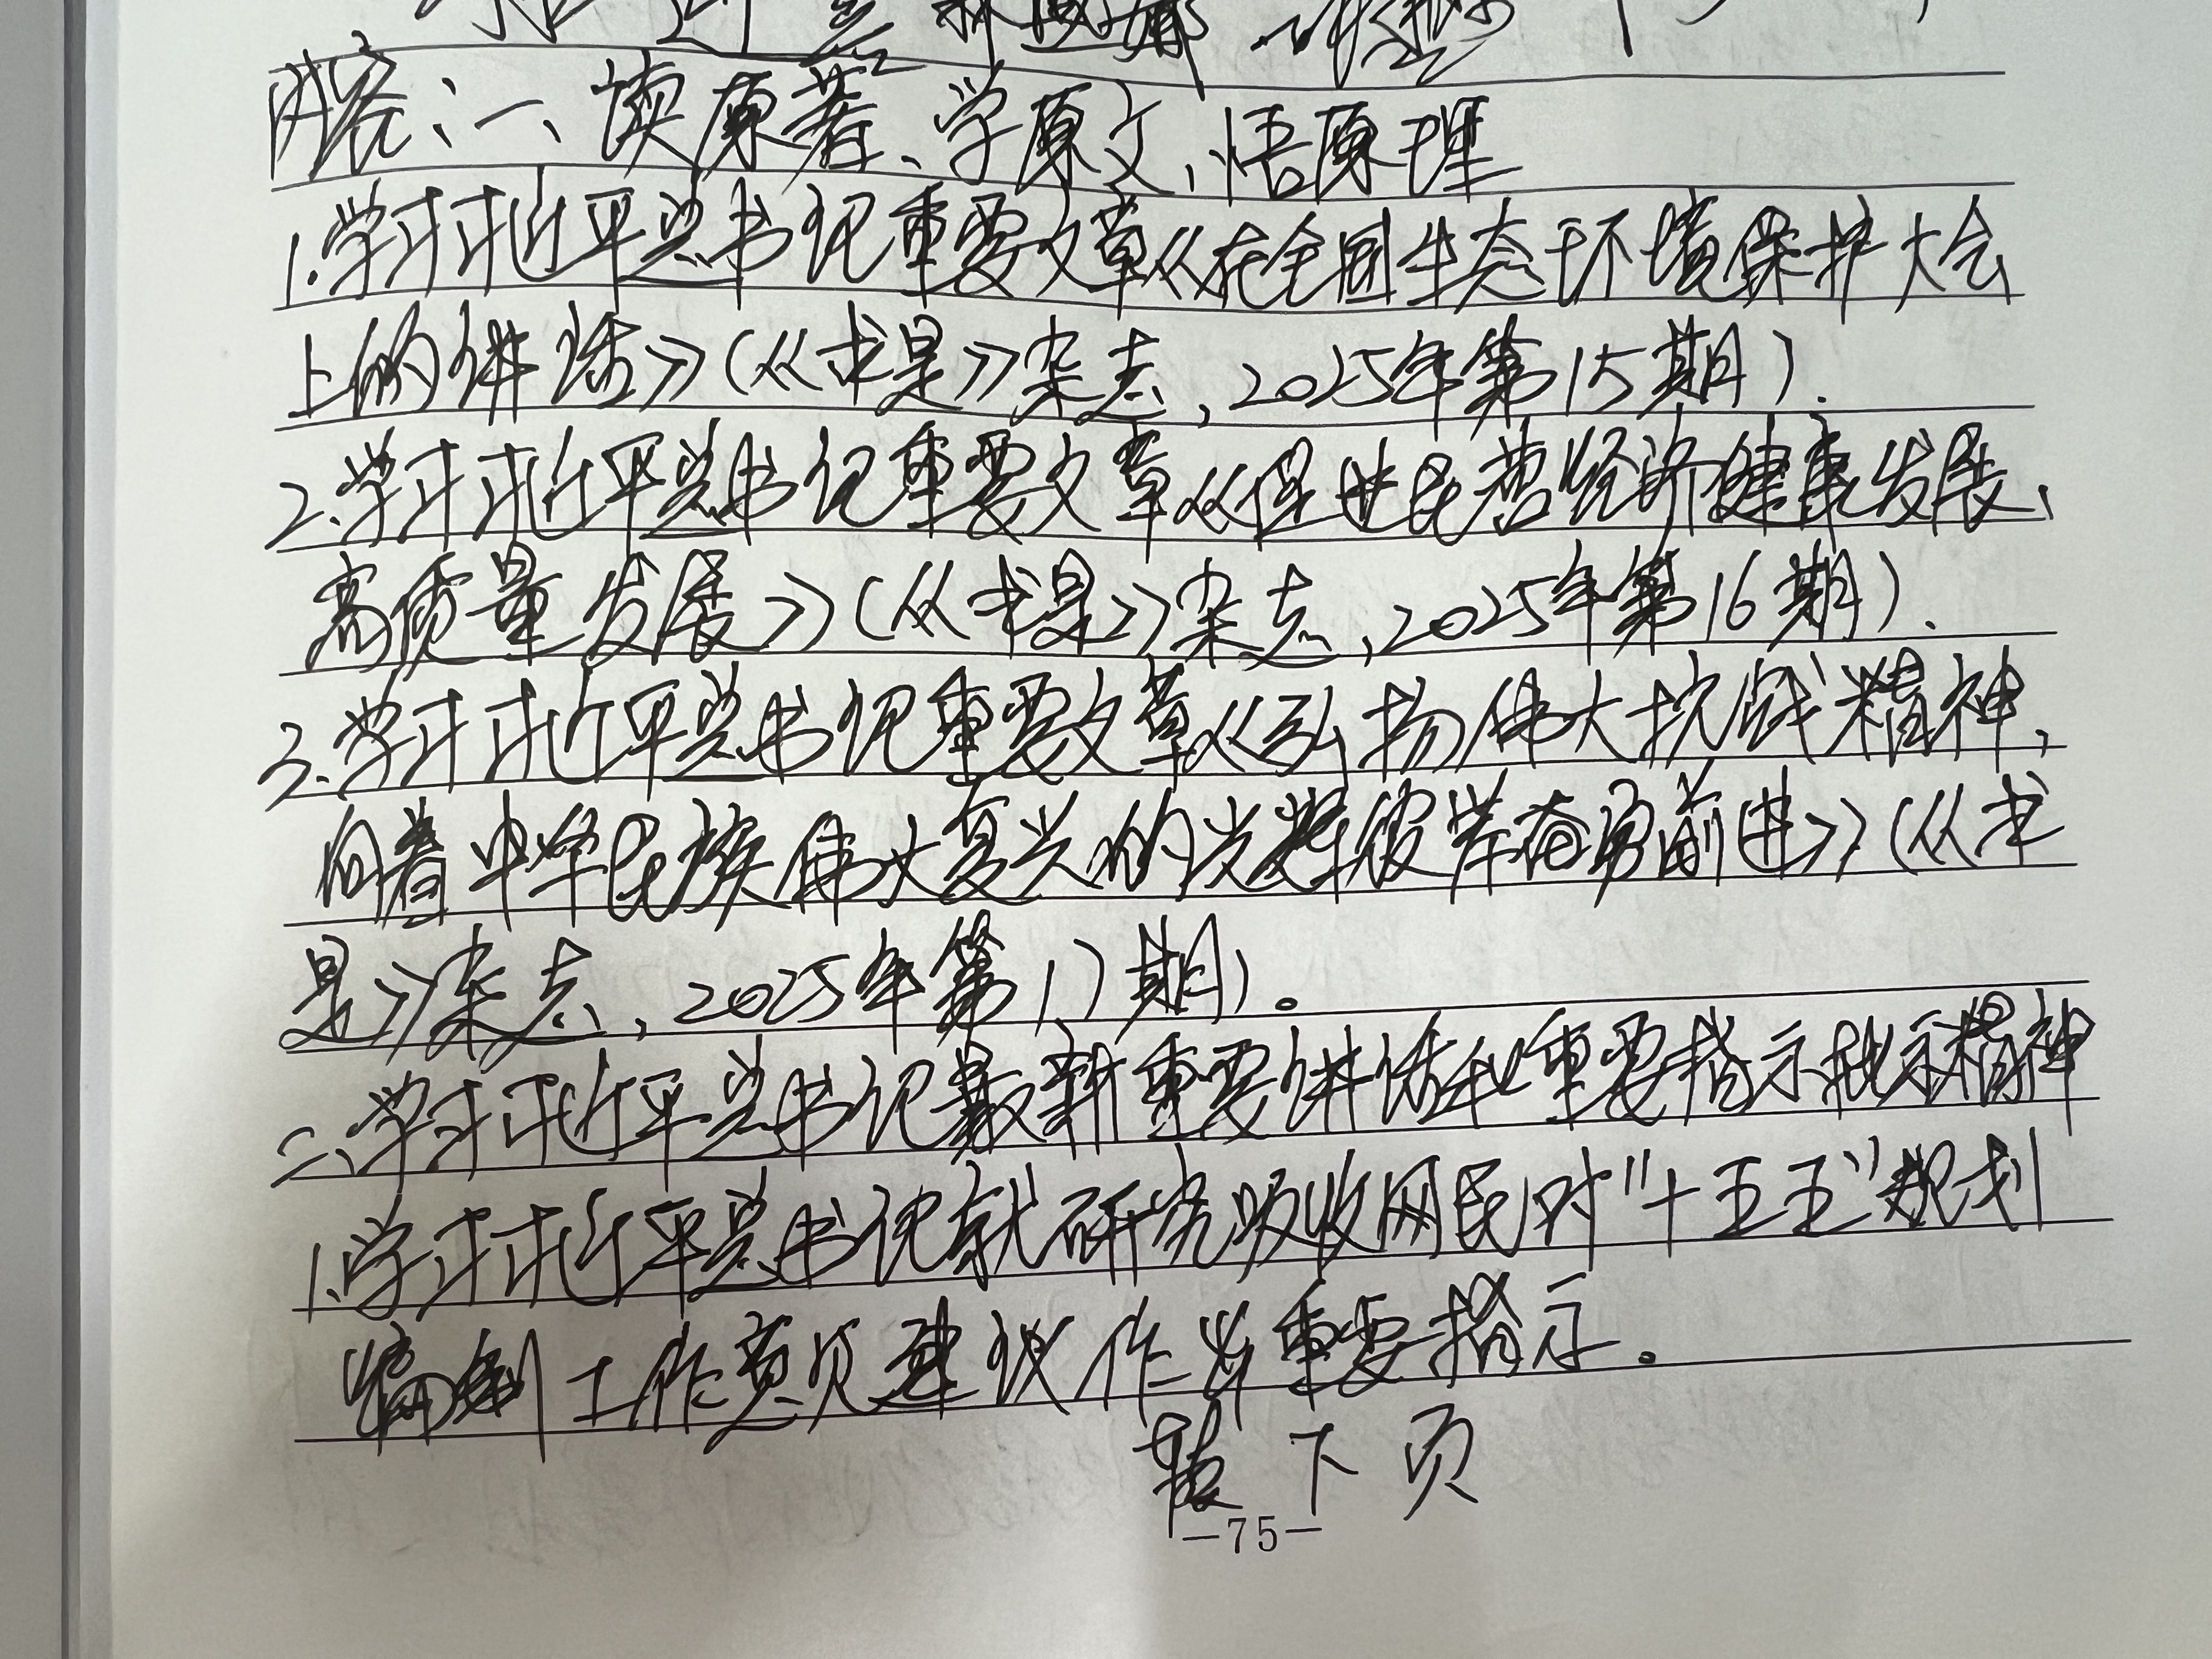 内容:一、读原著、学原文、悟原理
1.学习习近平总书记重要文章《在全国生态环境保护大会
上的讲话》(《求是》杂志,2025年第15期).
2.学习习近平总书记重要文章《促进民营经济健康发展、
高质量发展》(《求是》杂志,2025年第16期).
3.学习习近平总书记重要文章《弘扬伟大抗战精神,
向着中华民族伟大复兴的光辉彼岸奋勇前进》(《求
是》杂志,2025年第17期)。
二、学习习近平总书记最新重要讲话和重要指示批示精神
1.学习习近平总书记就研究吸收网民对"十五五"规划
编制工作意见建议作出重要指示。
接下页
—75—